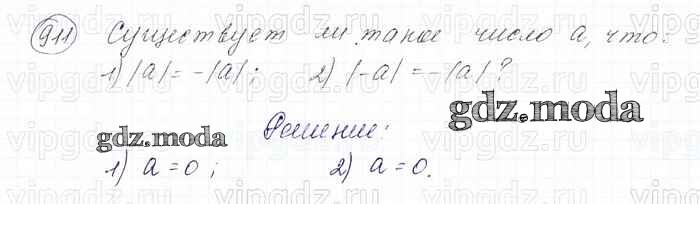 911 Существует ли такое число a, что:
1) |a| = -|a|; 2) |-a| = -|a|?
gdz.moda
Решение:
gdz.moda
1) a = 0; 2) a = 0.